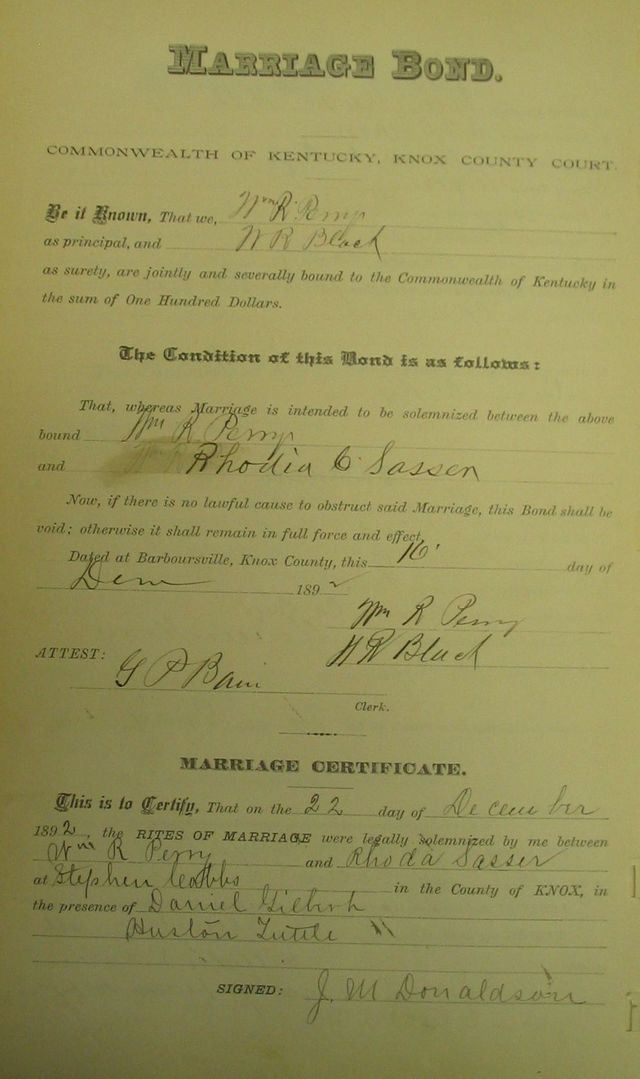 MARRIAGE BOND.
COMMONWEALTH OF KENTUCKY, KNOX COUNTY COURT.
Be it Known, That we, Wm R. Perry
as principal, and W R Black
as surety, are jointly and severally bound to the Commonwealth of Kentucky in
the sum of One Hundred Dollars.
The Condition of this Bond is as follows:
That, whereas Marriage is intended to be solemnized between the above
bound Wm R Perry
and Rhodia C. Sasser
Now, if there is no lawful cause to obstruct said Marriage, this Bond shall be
void; otherwise it shall remain in full force and effect.
Dated at Barboursville, Knox County, this 16 day of
1892
Wm R Perry
W R Black
ATTEST:
G P Bain
Clerk.
MARRIAGE CERTIFICATE.
This is to Certify, That on the 22 day of December
1892, the RITES OF MARRIAGE were legally solemnized by me between
Wm R Perry and Rhoda Sasser
at Stephen Cobbs in the County of KNOX, in
the presence of Daniel
Huston Tuttle
SIGNED: J. M Donaldson